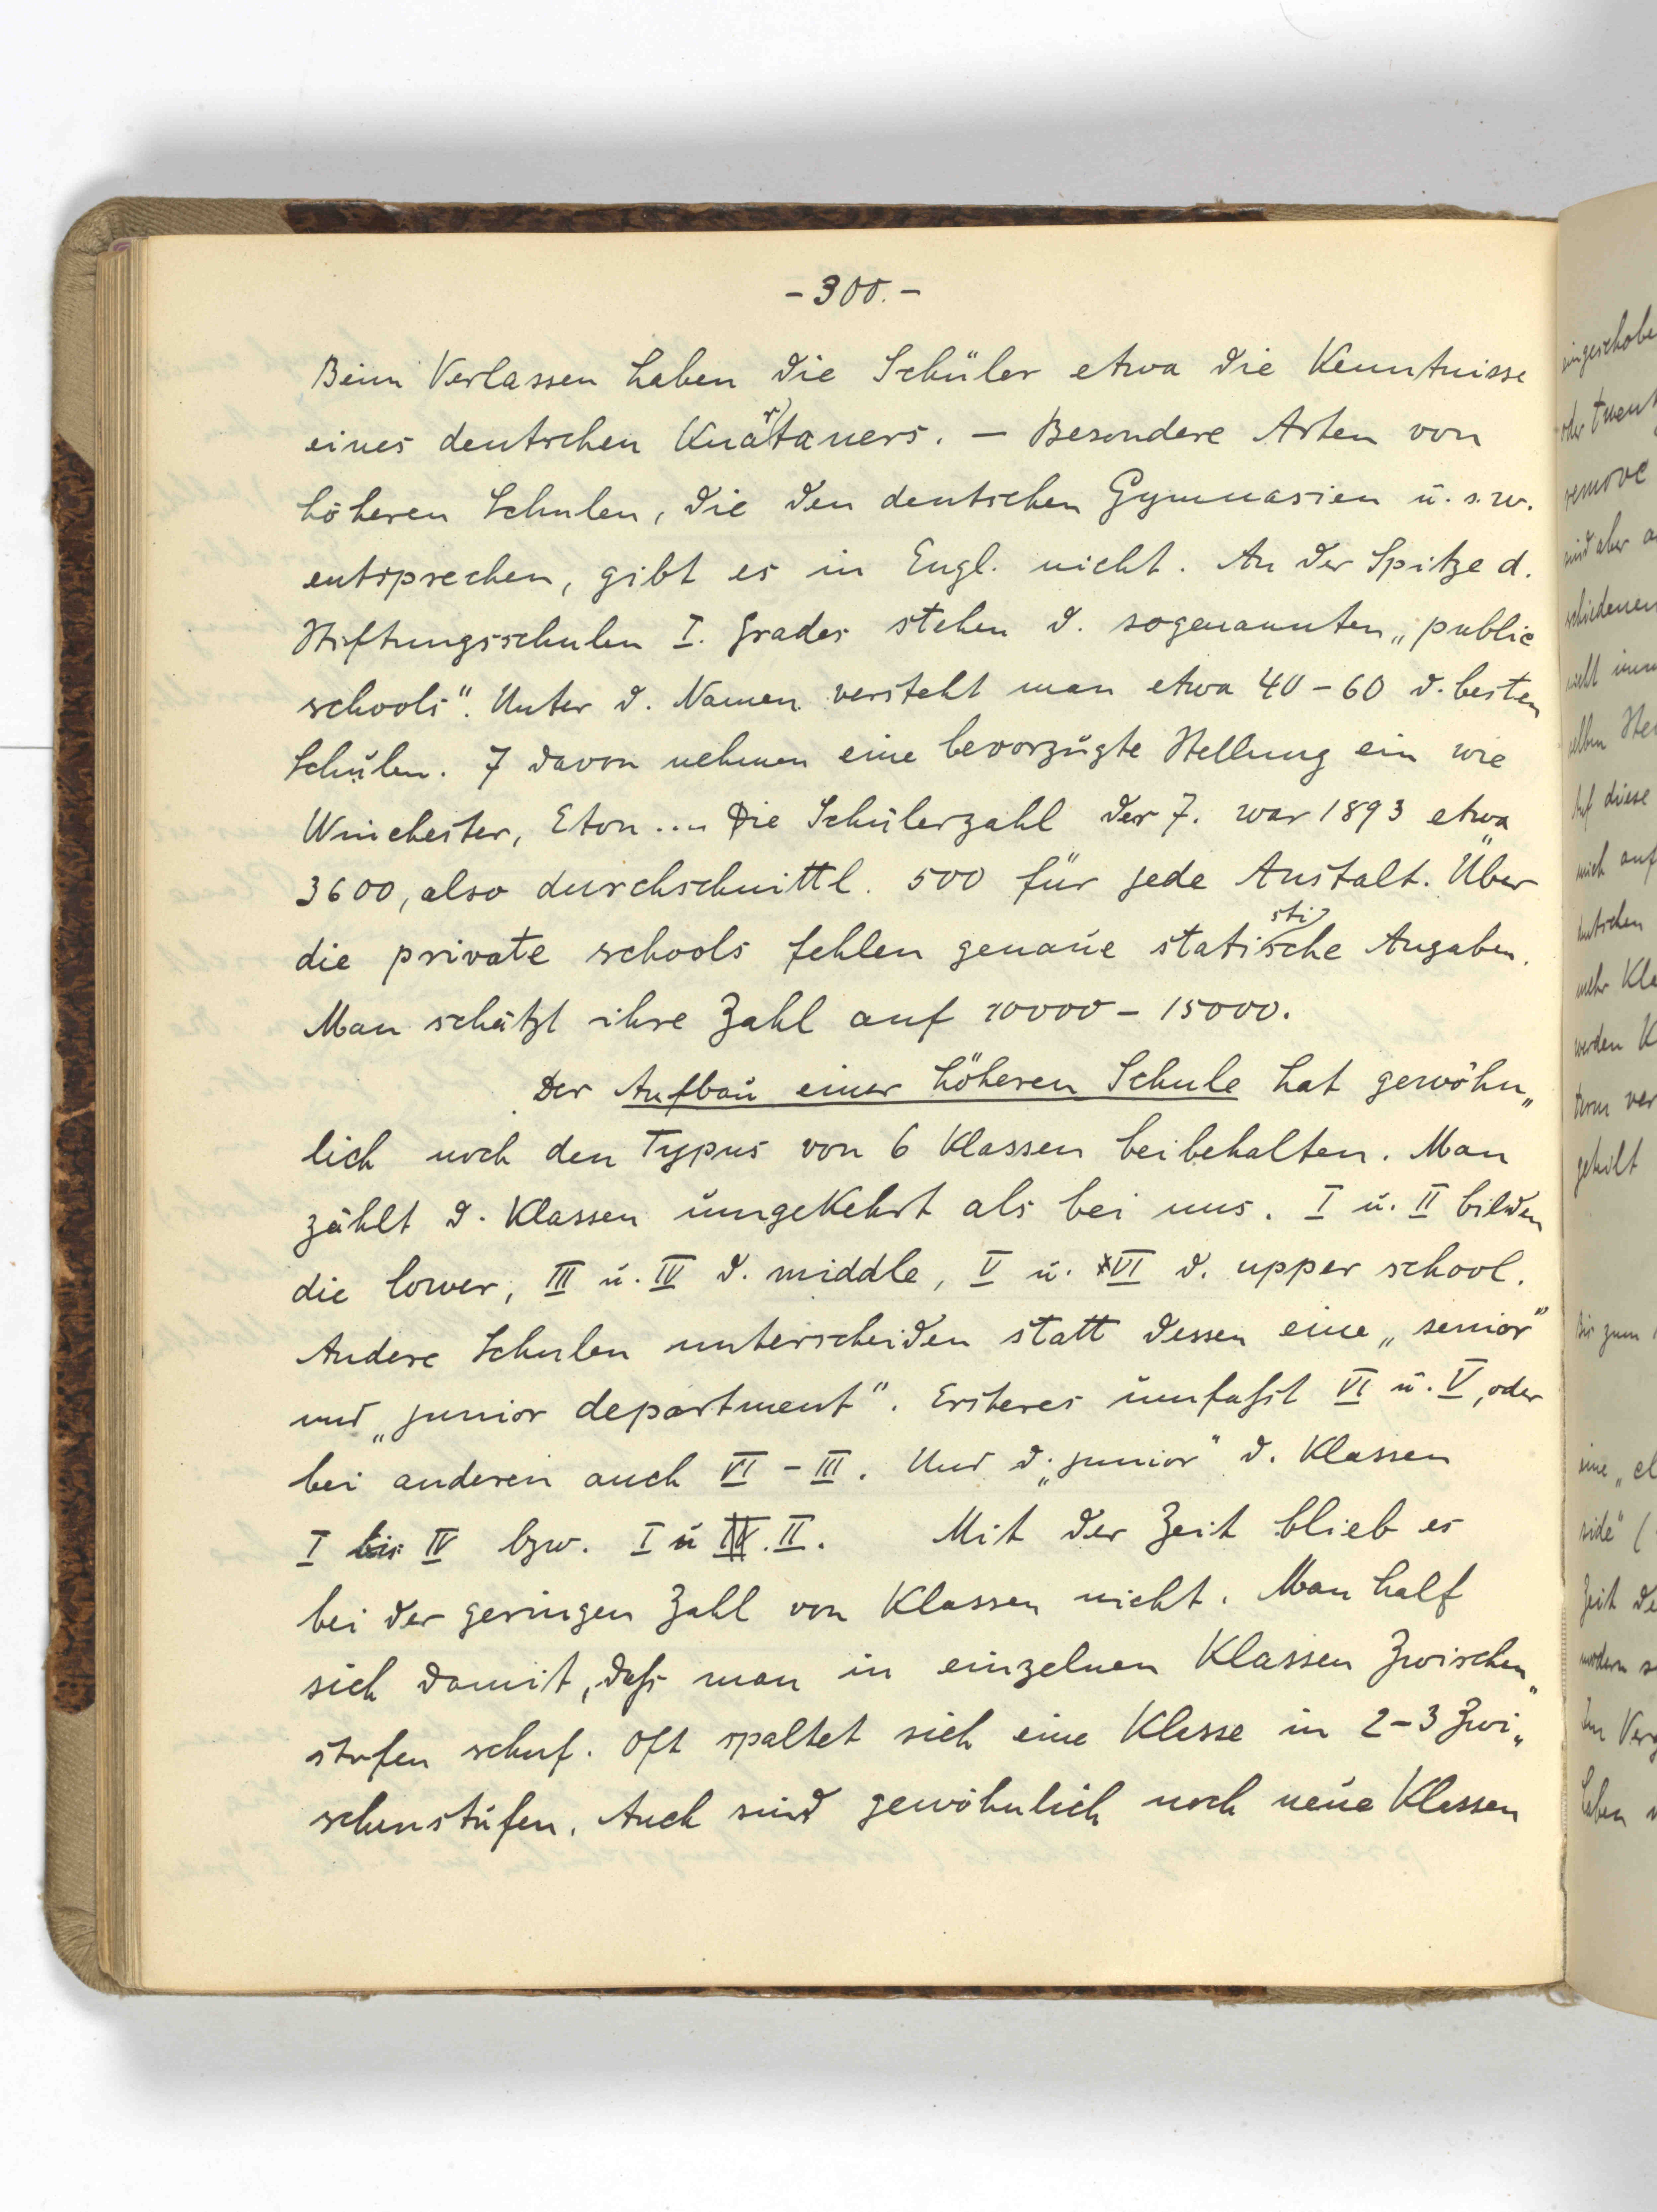 - 300. -
Beim Verlassen haben die Schüler etwa die Kenntnisse
eines deutschen Knärtaners. — Besondere Arten von
höheren Schulen, die den deutschen Gymnasien u. s. w.
entsprechen, gibt es in Engl. nicht. An der Spitze d.
Stiftungsschulen I. Grades stehen d. sogenannten „public
schools". Unter d. Namen versteht man etwa 40 - 60 d. besten
Schulen. 7 davon nehmen eine bevorzugte Stellung ein wie
Winchester, Eton .... Die Schülerzahl der 7. war 1893 etwa
3600, also durchschnittl. 500 für jede Anstalt. Über
die private schools fehlen genaue statistische Angaben.
Man schätzt ihre Zahl auf 10000 - 15000.
Der Aufbau einer höheren Schule hat gewöhn„
lich noch den Typus von 6 Klassen beibehalten. Man
zählt d. Klassen umgekehrt als bei uns. I u. II bilden
die lower, III u. IV d. middle, V u. VI d. upper school.
Andere Schulen unterscheiden statt dessen eine „senior"
und „junior department". Ersteres umfaßt VI u. V, oder
bei anderen auch VI - III. Und d. „junior" d. Klassen
I bis IV bzw. I u II. Mit der Zeit blieb es
bei der geringen Zahl von Klassen nicht. Man half
sich damit, daß man in einzelnen Klassen Zwischen„
stufen schuf. Oft spaltet sich eine Klasse in 2-3 Zwi„
schenstufen. Auch sind gewöhnlich noch neue Klassen
eingeschobe
oder
remove
sind aber
schiedenen
nicht
selben
auf diese
mich auf
deutschen
mehr Kla
werden K
term ver
geteilt
Bis zum
eine „cl
side" (
Zeit de
modern s
Im Verg
haben